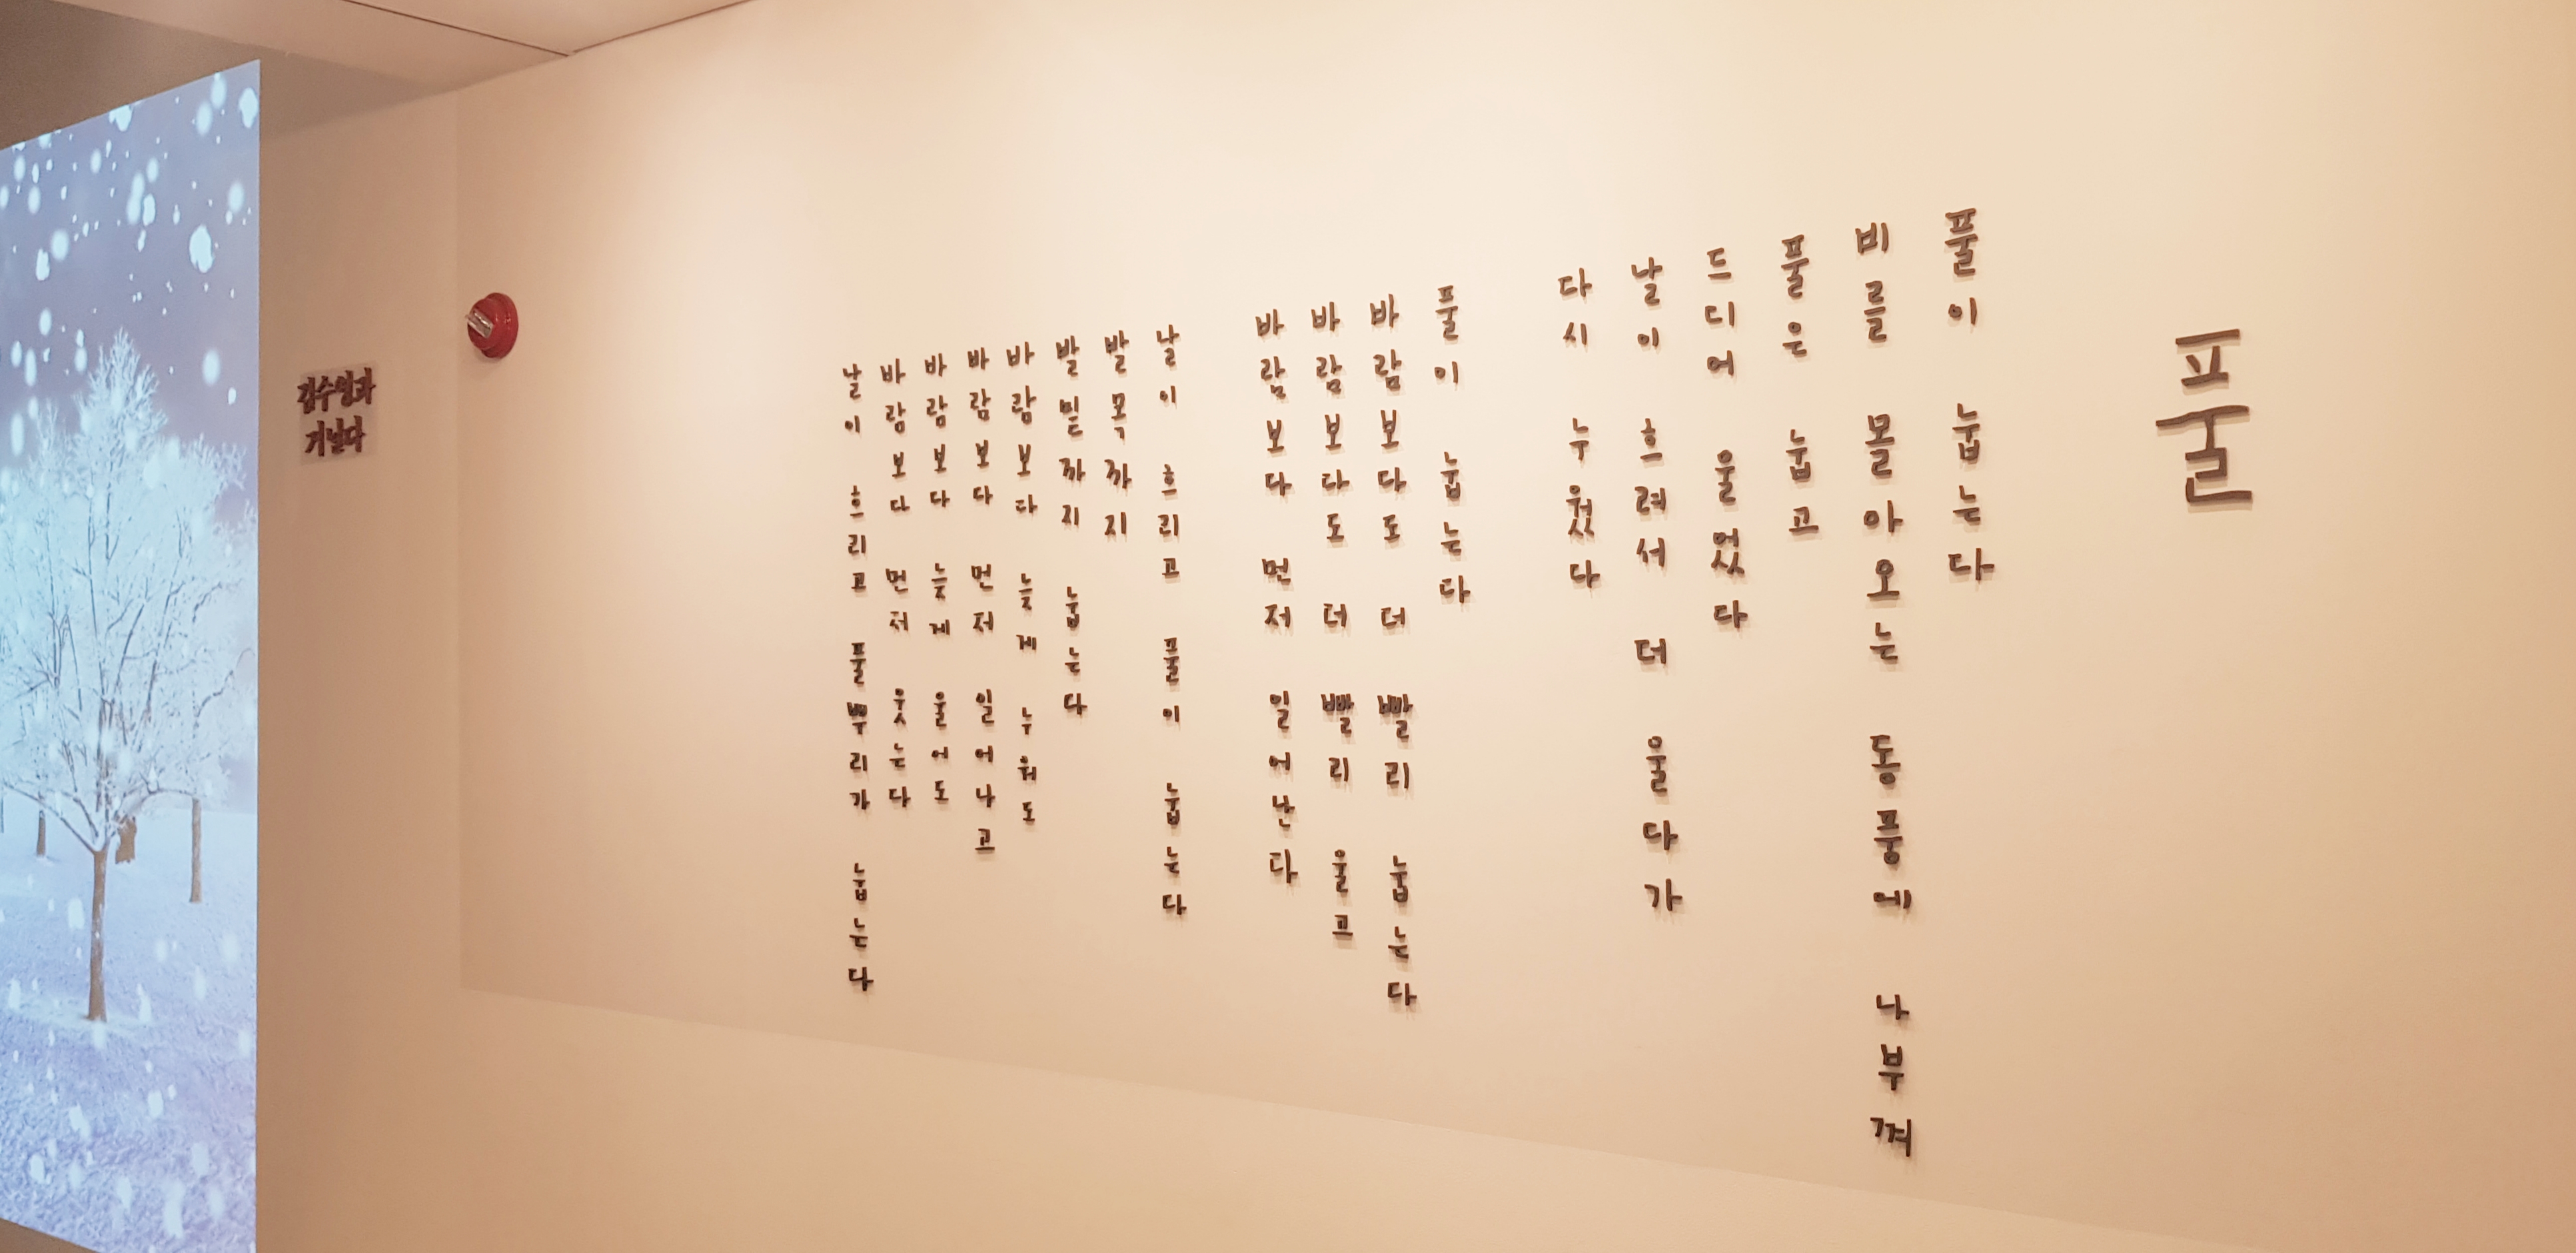 풀
풀이 눕는다
비를 몰아오는 동풍에 나부껴
풀은 눕고
드디어 울었다
날이 흐려서 더 울다가
다시 누웠다
풀이 눕는다
바람보다도 더 빨리 눕는다
바람보다도 더 빨리 울고
바람보다 먼저 일어난다
날이 흐리고 풀이 눕는다
발목까지
발밑까지 눕는다
바람보다 늦게 누워도
바람보다 먼저 일어나고
바람보다 늦게 울어도
바람보다 먼저 웃는다
날이 흐리고 풀뿌리가 눕는다
김수영과
거닐다